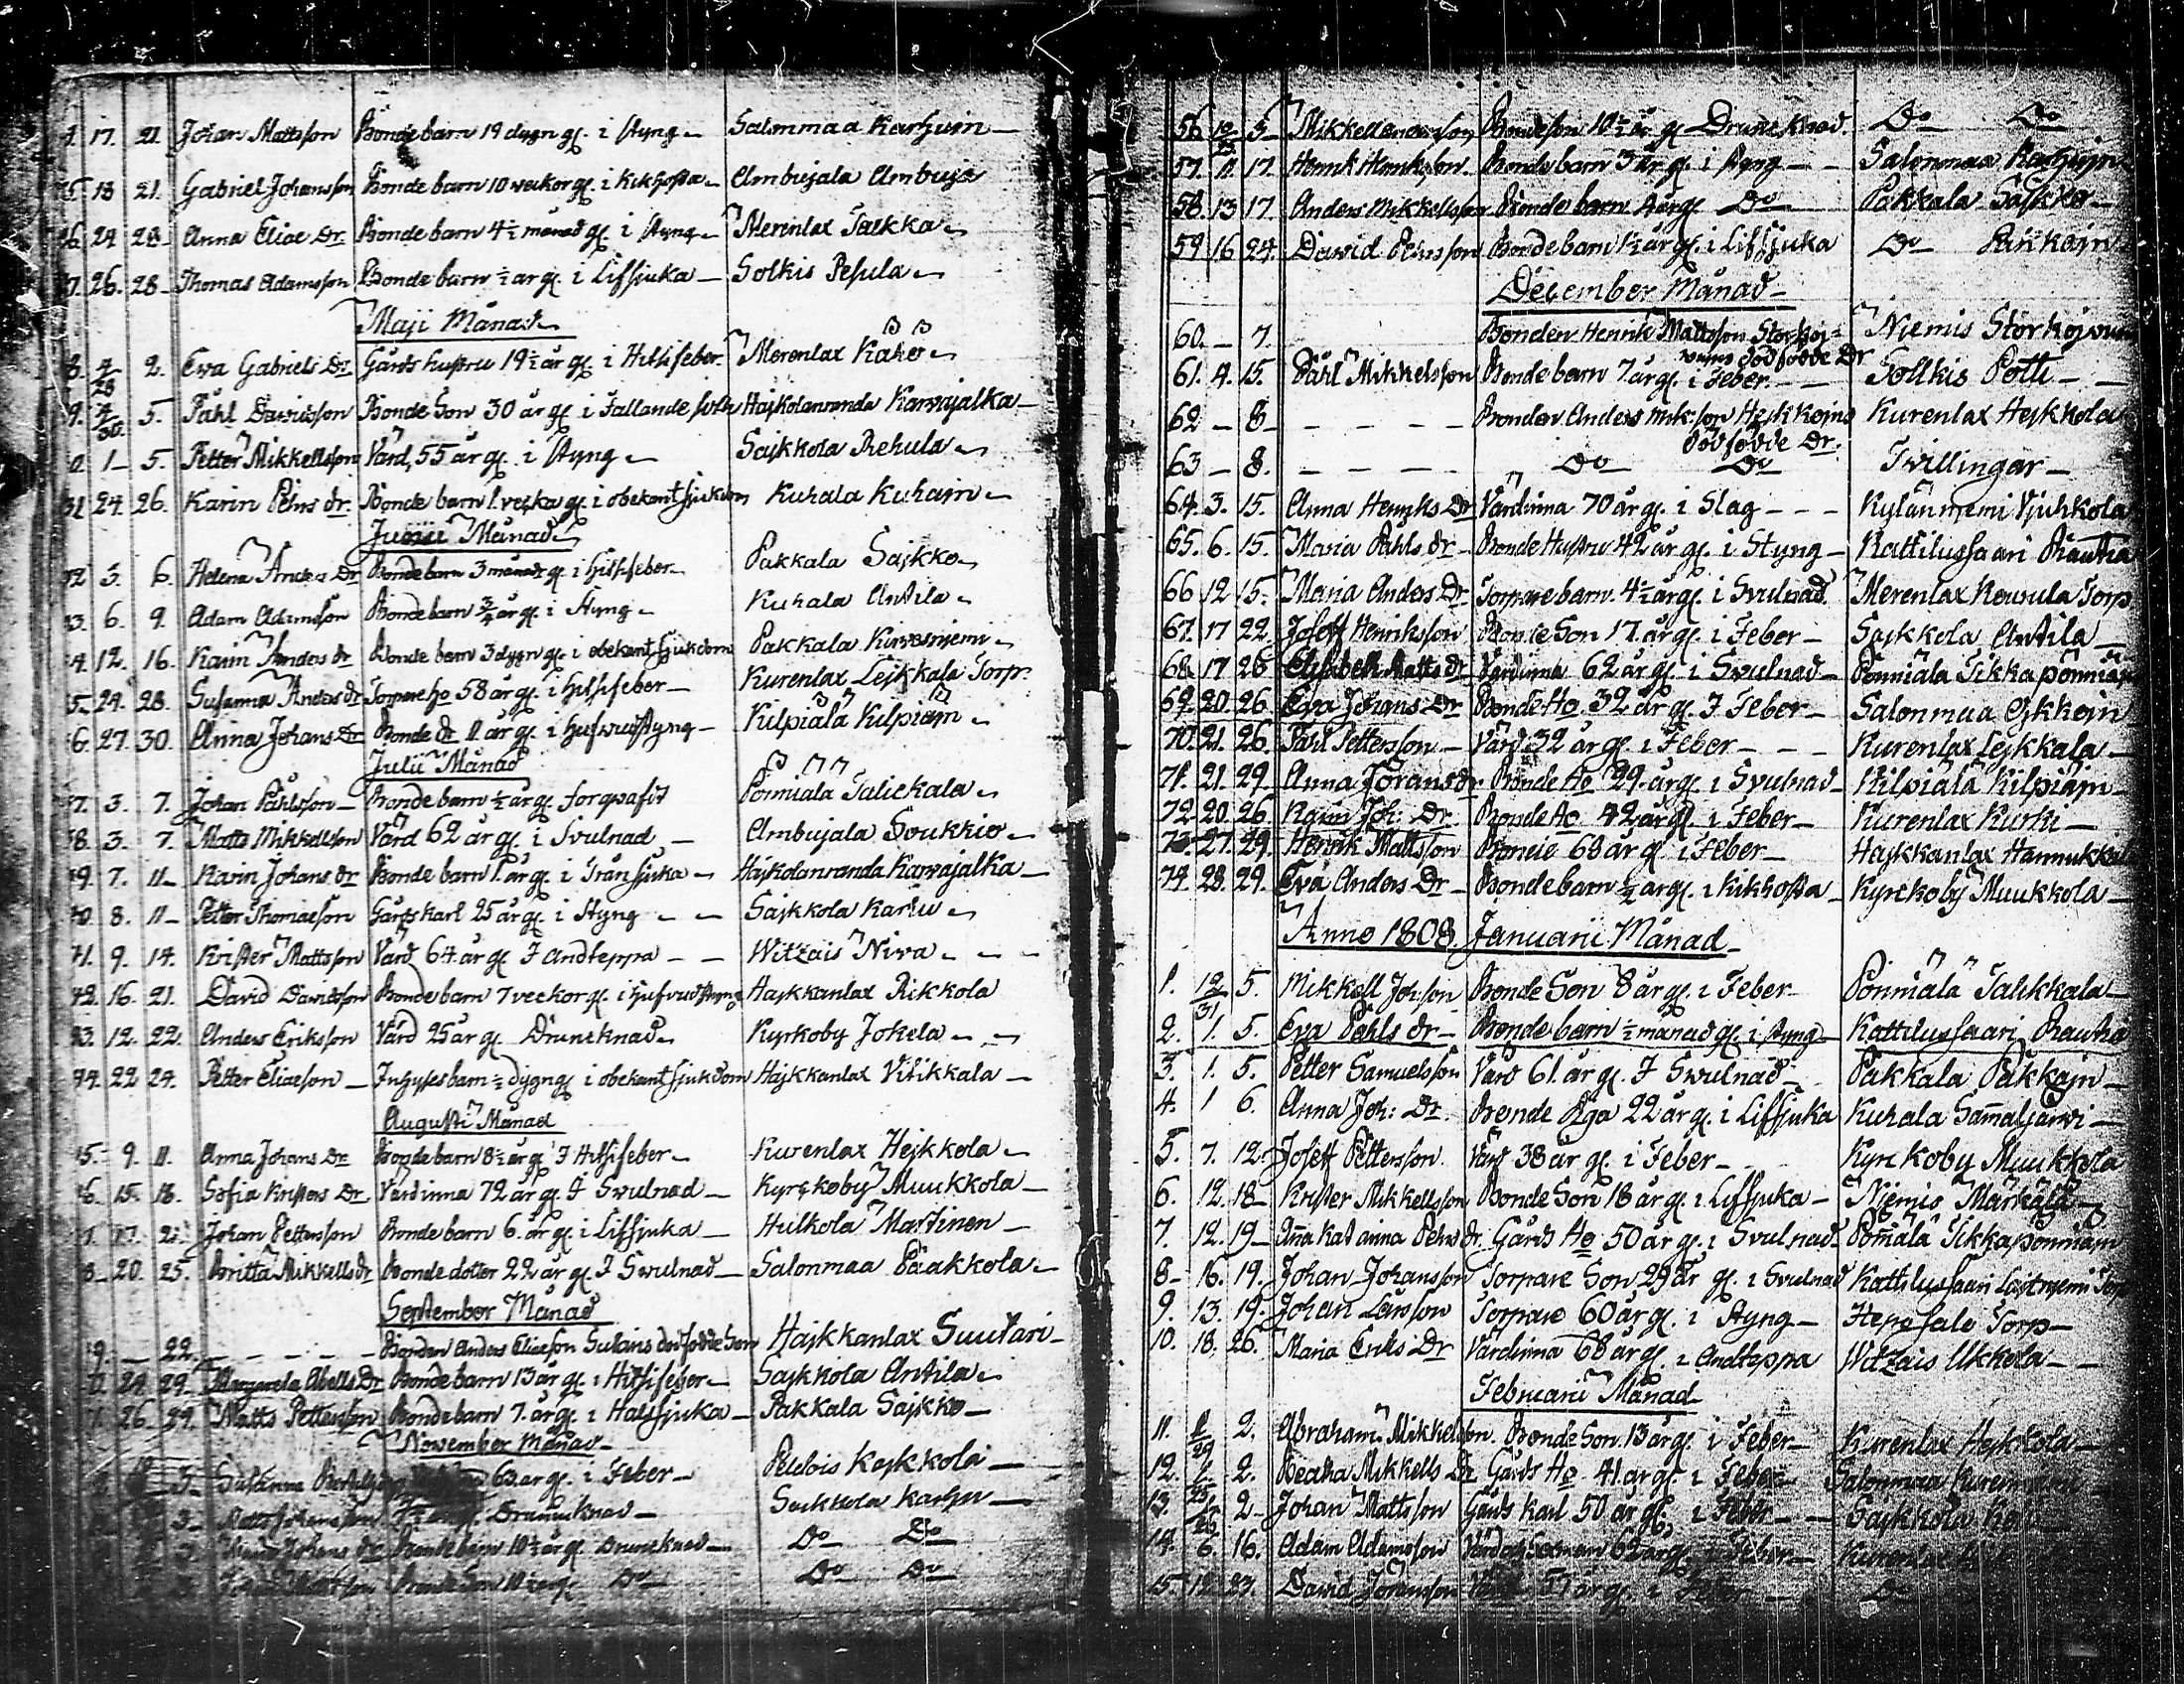 17. 21. Johan Mattsson Bonde barn 19 dygn gl. i styng Salonmaa Karhuin
13 21. Gabriel Johansson Bonde barn 10 veckor gl. i Kikhosta Ambujala Ambuja
24 28 Anna Eliae Dr Bonde barn 4½ månad gl. i styng Merenlax Talkka
26. 28 Thomas Adamsson Bonde barn ½ år gl. i Lifsjuka Solkis Pesula
Maji Månad
4/28 2. Eva Gabriels Dr Gårds hustru 19½ år gl. i Hitsifeber Merenlax Kaho
9. 4/30. 5. Påhl Davidsson Bonde Son 30 år gl. i Fallande Hajkolanranda Karvajalka
1 5. Petter Mikkellsson Värd, 55 år gl. i styng Sajkkola Rehula
31 24. 26. Karin Pehrs dr. Bonde barn 1. vecka gl. i obekant sjukdom Kuhala Kuhain
Junii Månad
32 3. 6. Helena Anders Dr Bonde barn 3 månadr gl. i hitsifeber Pakkala Sajkko
33. 6. 9. Adam Adamsson Bonde barn ¾ år gl. i Styng Kuhala Antila
34. 12. 16. Karin Anders dr Bonde barn 3 dygn gl. i obekant sjukdom Pakkala Kurvesniemi
35. 24. 28. Susanna Anders dr Torpare ho 58 år gl. i hitsifeber Kurenlax Lejkkala Torp.
36. 27. 30. Anna Johans Dr Bonde dr 11 år gl. i hufvudstyng Kilpiälä Kilpiäin
Julii Månad
37. 3. 7. Johan Påhlsson Bonde barn ½ år gl. förqvafit Pönniälä Taliekala
38. 3. 7. Matts Mikkellsson Värd 62 år gl. i Svulnad Ambujala Soukkio
39. 7. 11 Karin Johans dr Bonde barn 1. år gl. i Trånsjuka Hajkolanranda Karvajalka
40. 8. 11 Petter Thomasson Gårds karl 25 år gl. i Styng Sajkkola Karhu
41. 9. 14. Krister Mattsson Värd 64 år gl. I Andteppa Witzais Niva
42. 16. 21. David Davidsson Bonde barn 7 veckor gl. i hufvudstyng Hajkkanlax Rikkola
43. 12. 22. Anders Eriksson Värd 25 år gl. Druncknad Kyrkoby Jokela
44. 22 24. Petter Eliaeson Inhyses barn ½ dygn gl. i obekant sjukdom Hajkkanlax Vitikkala
Augusti Månad
45. 9. 11. Anna Johans Dr Bonde barn 8½ år gl. I Hitsifeber Kurenlax Hejkkola
46. 15. 18. Sofia Kristers Dr Värdinna 72 år gl. I Svulnad Kyrckoby Muukkola
17. Johan Pettersson Bonde barn 6. år gl. i Lifsjuka Hulkola Martinen
8 20. 25. Britta Mikkells dr Bonde dotter 22 år gl. I Svulnad Salonmaa Pääkkola
September Månad
9. 22. Bonden Anders Eliaeson Sutains dödfödde Son Hajkkanlax Suutari
24 29 Margareta Abells Dr Bonde barn 13 år gl. i Hitsifeber Sajkkola Antila
26 29. Matts Pettersson Bonde barn 7. år gl. i Halssjuka Pakkala Sajkko
November Månad
5 Susanna 63 år gl. i Feber Peldois Kejkkola
3 Matts Johansson Drunncknad Sajkkola Karhu
Johans dr Bonde barn 10½ år gl. Druncknad Do Do
Bonde Son 11½ år gl. Do Do Do
56 10/25 5 Mikkell Bonde son 10½ år gl. Druncknad. Do Do
57. 11. 17. Henrik Henriksson. Bonde barn 3 år gl. i styng Salonmaa Karhuin
58. 13 17. Anders Mikkellsson Bonde barn 4 år gl. Do Pakkala Sajkko
59 16 24. David Pehrsson Bonde barn 1½ år gl. i Lifssjuka Do Pakkajn
December Månad
60. 7 Bonden Henrik Mattsson Storhoj- Niemis Storhojvain
vains dödfödde Dr
61. 4. 15. Påhl Mikkelsson Bonde barn 7. år gl. i Feber Sollkis Potti
62 8 Bonden Anders Mik:son Hejkkoins Kurenlax Hejkkola
dödfödde Dr.
63 8. Do Do Tvillingar
64. 3. 15. Anna Henriks Dr Värdinna 70 år gl. i Slag Kylänniemi Vjuhkola
65. 6. 15. Maria Påhls dr Bonde Hustru 42 år gl. i Styng Kattilussaari Rauha
66 12 15. Maria Anders Dr Torpare barn 4½ år gl. i Svulnad. Merenlax Kousula Torp
67. 17 22. Joseff Henriksson Bonde Son 17. år gl. i Feber Sajkkola Antila
68. 17 26 Elisabeth Matts dr Värdinna 62 år gl. i Svulnad Pönniälä Tikkapönniäin
69. 20. 26 Eva Johans Dr Bonde Ho 32 år gl. I Feber Salonmaa
70. 21. 26. Påhl Pettersson Värd 32 år gl. i Feber Kurenlax Lejkkala
71. 21. 29. Anna Jöransdr Bonde Ho 29 år gl. i Svulnad Kilpiälä Kilpiäjn
72 20. 26. Karin Joh: Dr Bonde Ho 42 år gl. i Feber Kurenlax Kurki
73. 27. 29. Henrik Mattsson Bonde 68 år gl. i Feber Hajkkanlax Hannukkala
74. 28. 29. Eva Anders Dr Bonde barn ½ år gl. i Kikhosta Kyrckoby Muukkola
Anno 1808. Januarii Månad
1. 12/31 5. Mikkell Joh:son Bonde Son 8 år gl. i Feber Pönniälä Talikkala
2. 1. 5. Eva Pehls dr Bonde barn ½ månad gl. i styng Kattilussaari Rauha
3. 1. 5. Petter Samuelsson Värd 61. år gl. I Swulnad Pakkala Pakkajn
4. 1 6. Anna Joh: Dr Bonde Piga 22 år gl. i Lifsjuka Kuhala Samaljärvi
5. 7. 12. Joseff Pettersson. Värd 38 år gl. i Feber Kyrckoby Muukkola
6. 12. 18 Krister Mikkellsson Bonde Son 18 år gl. i Lifsjuka Niemis Märkälä
7. 12. 19 Anna Katarina Pehrs dr. Gårds Ho 50 år gl. i Svulnad Pönniälä Tikkapönniäjn
8 16. 19. Johan Johansson Torpare Son 29 år gl. i Svulnad Kattilussaari Torp
9. 13. 19. Johan Larsson Torpare 60 år gl. i Styng Hepo salo Torp
10. 18. 26. Maria Eriks Dr Värdinna 68 år gl. i Andteppa Witzais Ukkola
Februarii Månad
11. 1/29 2. Abraham Mikkelson. Bonde Son 13 år gl. i Feber Kurenlax Hejkkola
12. 1/25 2. Beatha Mikkells Dr Gårds Ho 41. år gl. i Feber Salonmaa
13. 1/26 2 Johan Mattsson Gårds karl 50 år gl. i Feber Sajkkola
14. 6. 16. Adam Adamsson Värd 62 år gl. i Feber Kurenlax
15. 12 23. David Jöransson Värd 51 år gl. i Feber